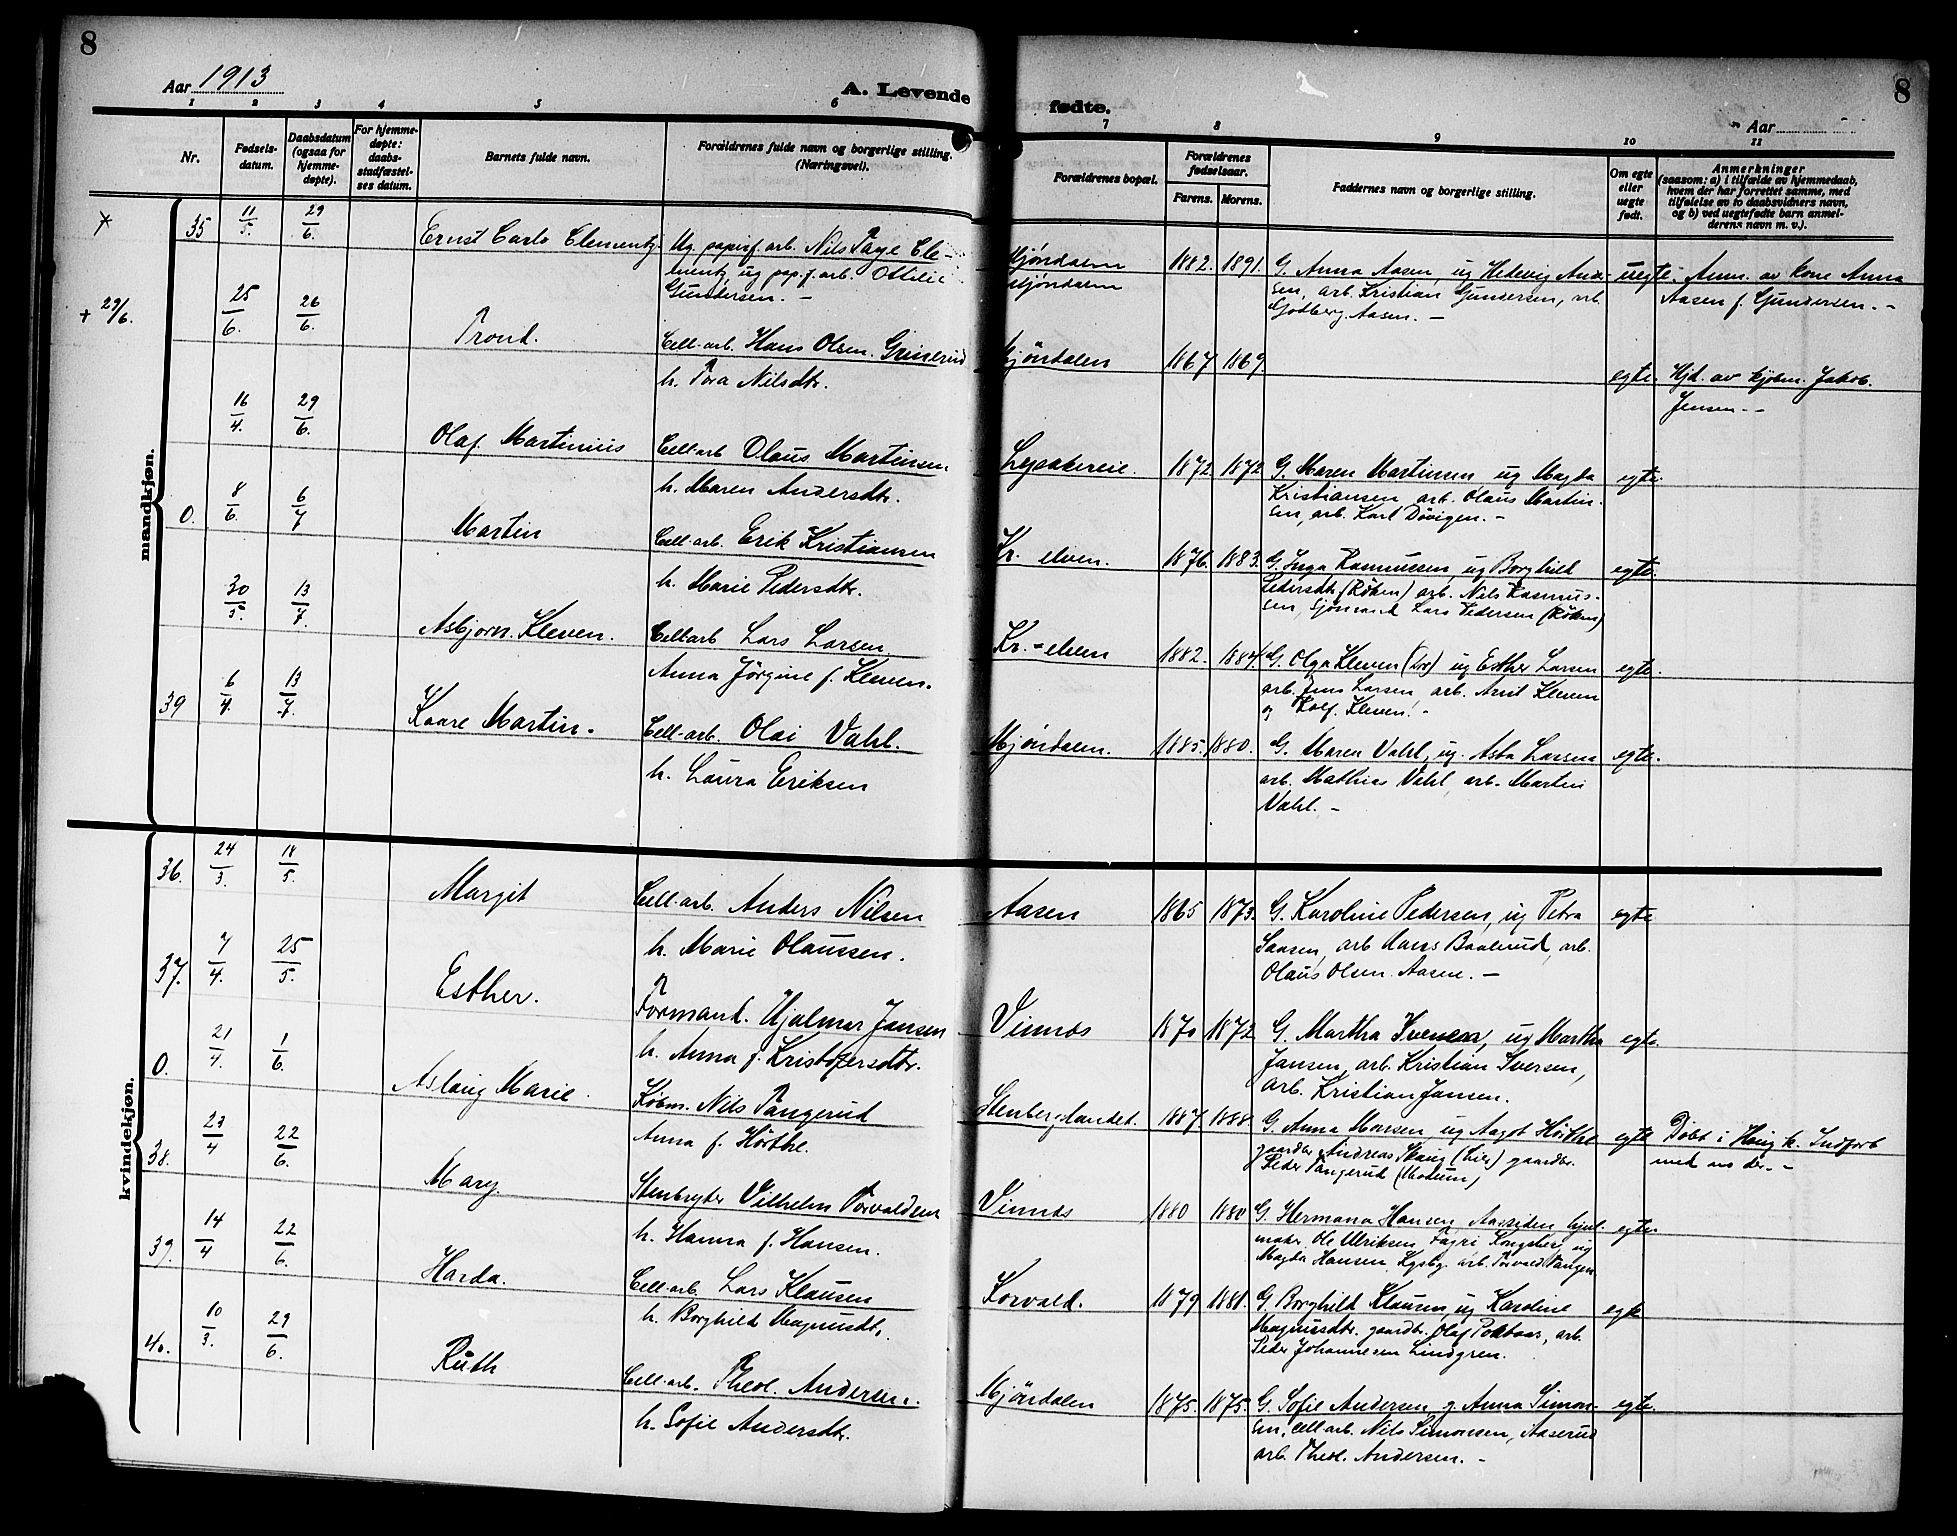 8
8
Aar 1913
A. Levende
fødte.
Aar
1 2 3 4 5 6
7 8 9 10 11
Nr.
Fødsels-
datum.
Daabsdatum
(ogsaa for
hjemme-
døpte).
For hjemme-
døpte:
daabs-
stadfæstel-
ses datum.
Barnets fulde navn.
Forældrenes fulde navn og borgerlige stilling.
(Næringsvei).
Forældrenes bopæl.
Forældrenes
fødselsaar.
Farens. Morens.
Faddernes navn og borgerlige stilling.
Om egte
eller
uegte
født.
Anmerkninger
(saasom: a) i tilfælde av hjemmedaab,
hvem der har forrettet samme, med
tilføielse av to daabsvidners navn,
og b) ved uegtefødte barn anmel-
derens navn m. v.).
mandkjøn.
35 11/5. 29/6. Ernst Carlo Clementz. Ug. papirf. arb. Nils Page Cle-
mentz, ug pap.f. arb. Ottilie
Gundersen. -
Mjöndalen
Mjöndalen
1882. 1891. G. Anna Aasen, ug Hedevig And-
sen, arb. Kristian Gundersen, arb.
Gödberg Aasen. -
uegte. Anm. av kone Anna
Aasen f. Gundersen. -
+ 29/6. 25/6. 26/6. Trond. Cell-arb. Hans Olsen Grinerud
h. Tora Nilsdtr.
Mjöndalen 1867 1869. egte. Hjd. av kjöbm. Jakob
Jensen. -
16/4. 29/6. Olaf Martinius Cell-arb Olaus Martinsen
h. Maren Andersdtr.
1872. 1872 G. Maren Martinsen, ug Magda
Kristiansen, arb. Olaus Martin-
sen, arb. Karl Dövigen. -
egte.
0. 8/6. 6/7 Martin Cell-arb. Erik Kristiansen
h. Marie Pedersdtr.
Kr. elven. 1876. 1883. G. Inga Rasmussen, ug Borghild
Pedersdtr (Röken) arb. Nils Rasmus-
sen, sjömand Lars Pedersen (Röken)
egte.
30/5. 13/7. Asbjorn Kleven. Cellarb Lars Larsen
Anna Jörgine f. Kleven.
Kr. - elven 1882. 1884. G. Olga Kleven ug Esther Larsen
arb. Jens Larsen, arb. Arnt Kleven
og Rolf Kleven. -
egte.
39 6/4. 13/7. Kaare Martin. Cell-arb. Olai Vahl.
h. Laura Eriksen
Mjöndalen. 1885. 1880. G. Maren Vahl, ug. Asta Larsen
arb. Mathias Vahl, arb. Martin
Vahl. -
egte.
kvindekjøn.
36. 24/3. 18/5. Margit Cell-arb. Anders Nilsen
h. Marie Olaussen.
Aasen 1865 1873. G. Karoline Pedersen, ug Petra
arb Hans Baalerud, arb.
Olaus Olsen Aasen. -
egte
37. 7/4. 25/5. Esther. Formand. Hjalmar Jansen
h. Anna f. Kristofersdtr.
Vinnæs 1870 1872 G. Martha Iversen, ug Martha
Jansen, arb. Kristian Iversen,
arb. Kristian Jansen.
egte.
0. 21/4. 1/6. Aslaug Marie. Köbm. Nils Tangerud
Anna f. Hörthe.
Stenberglandet. 1887. 1888. G. Anna Marsen, ug Aagot Hörthe
gaardbr. Andreas Skaug (Lier) gaardbr.
Peder Tangerud (Modum)
egte Döbt i Haug k. Indförb
med
38. 23/4 22/6. Mary. Stenbryder Vilhelm Torvaldsen
h. Hanna f. Hansen.
Vinnæs 1880 1880 G. Hermana Hansen, Aassiden, hjul-
maker Ole Ulriksen, Kongsberg, ug
Magda Hansen, Kgsbg. arb. Torvald Tangen
egte.
39. 14/4 22/6. Harda. Cell-arb. Lars Klausen
h. Borghild Magnusdtr.
Korvald. 1879 1881. G. Borghild Klausen, ug Karoline
Magnusdtr. gaardbr. Olaf arb.
Peder Johannesen Lindgren.
egte
40. 10/3. 29/6. Ruth Cell-arb. Theol. Andersen.
h. Sofie Andersdtr.
Mjöndalen 1875. 1875. G. Sofie Andersen, g Anna Simon-
sen, cell arb. Nils Simonsen, Aaserud
arb. Theol. Andersen. -
egte.